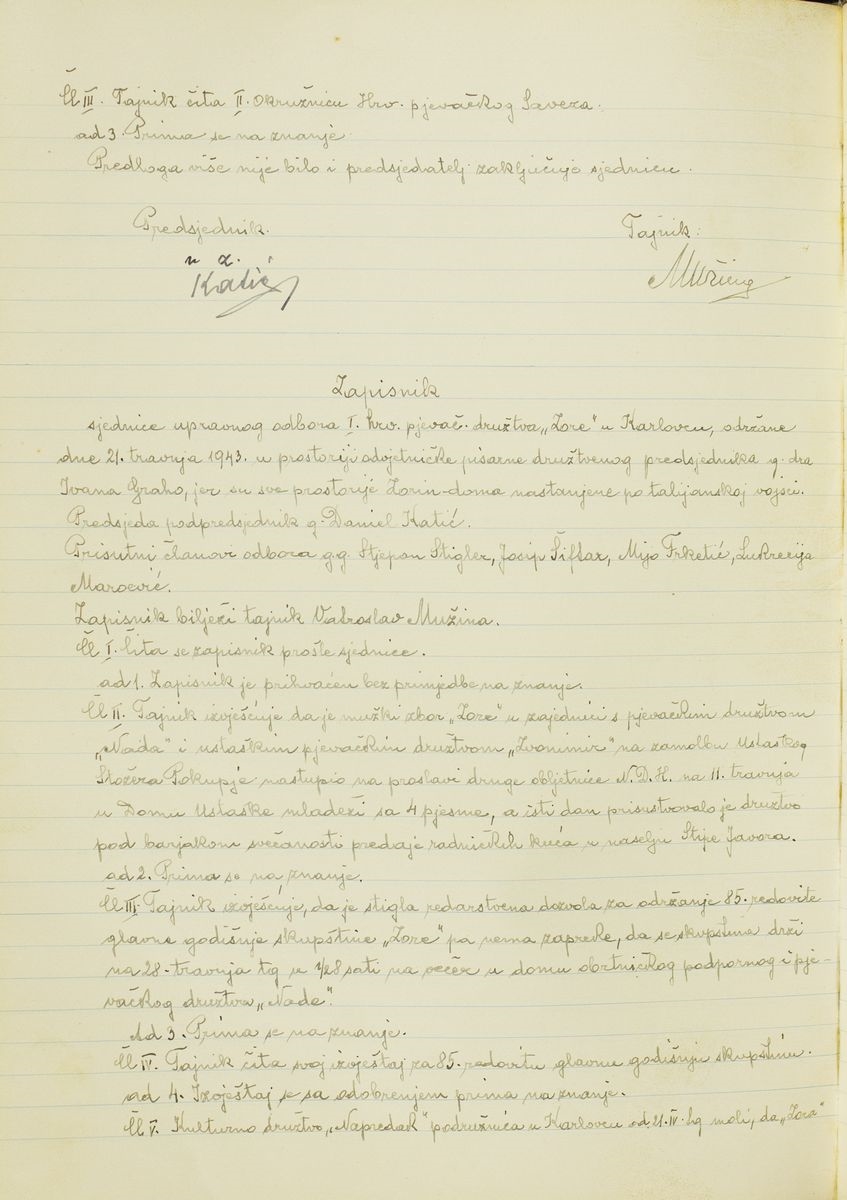 Čl III. Tajnik čita II. okružnicu Hrv. pjevačkog Saveza.
ad 3. Prima se na znanje.
Predloga više nije bilo i predsjedatelj zaključuje sjednicu.
Predsjednik. Tajnik:
u z.
Katić Mužina
Zapisnik
sjednice upravnog odbora I. hrv. pjevač. družtva „Zore" u Karlovcu, održane
dne 21. travnja 1943. u prostoriji odvjetničke pisarne družtvenog predsjednika g. dra
Ivana Graho, jer su sve prostorije Zorin-doma nastanjene po talijanskoj vojsci.
Predsjeda podpredsjednik g. Daniel Katić.
Prisutni članovi odbora g.g. Stjepan Stigler, Josip Šiftar, Mijo Frketić, Lukrecija
Marocvić.
Zapisnik bilježi tajnik Vatroslav Mužina.
Čl I. Čita se zapisnik prošle sjednice.
ad 1. Zapisnik je prihvaćen bez primjedbe na znanje.
Čl II. Tajnik izvješćuje da je mužki zbor „Zore" u zajednici s pjevačkim družtvom
„Nada" i ustaškim pjevačkim družtvom „Zvonimir" na zamolbu Ustaškog
Stožera Pokupje nastupio na proslavi druge obljetnice N.D.H. na 11. travnja
u Domu Ustaške mladeži sa 4 pjesme, a isti dan prisustvovalo je družtvo
pod barjakom svečanosti predaje radničkih kuća u naselju Stipe Javora.
ad 2. Prima se na znanje.
Čl III. Tajnik izvješćuje, da je stigla redarstvena dozvola za održanje 85. redovite
glavne godišnje skupštine „Zore" pa nema zapreke, da se skupština drži
na 28. travnja tg u 1/28 sati na večer u domu obrtničkog podpornog i pje-
vačkog družtva „Nade".
Ad 3. Prima se na znanje.
Čl IV. Tajnik čita svoj izvještaj za 85. redovitu glavnu godišnju skupštinu.
ad 4. Izvještaj se sa odobrenjem prima na znanje.
Čl V. Kulturno družtvo „Napredak" podružnica u Karlovcu od 21. IV. tg moli, da „Zora"